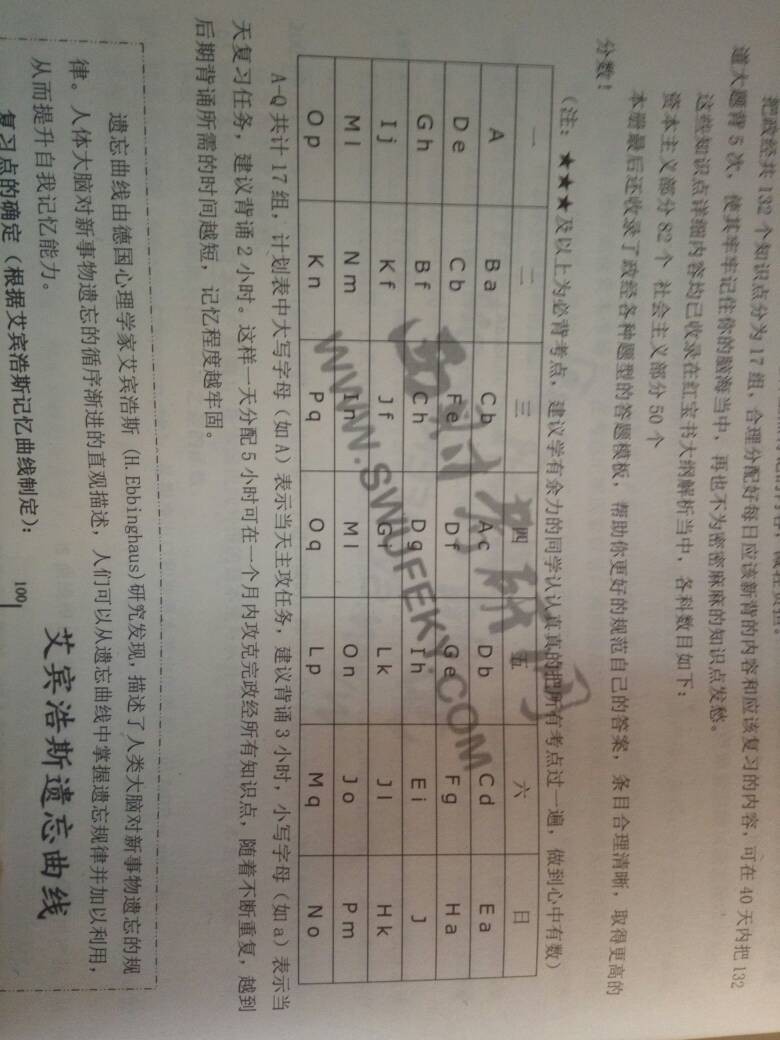 把政经共 132 个知识点分为 17 组，合理分配好每日应该新背的内容和应该复习的内容，可在 40 天内把 132
道大题背 5 次，使其牢牢记住你的脑海当中，再也不为密密麻麻的知识点发愁。
这些知识点详细内容均已收录在红宝书大纲解析当中，各科数目如下：
资本主义部分 82 个 社会主义部分 50 个
本册最后还收录了政经各种题型的答题模板，帮助你更好的规范自己的答案，条目合理清晰，取得更高的
分数！
（注：★★★及以上为必背考点，建议学有余力的同学认认真真的把所有考点过一遍，做到心中有数）
一 二 三 四 五 六 日
A Ba Cb Ac Db Cd Ea
De Cb Fe Df Ge Fg Ha
Gh Bf Ch Dg Ih Ei J
Ij Kf Jf Gi Lk Jl Hk
Ml Nm In Ml On Jo Pm
Op Kn Pq Oq Lp Mq No
A-Q 共计 17 组，计划表中大写字母（如 A）表示当天主攻任务，建议背诵 3 小时，小写字母（如 a）表示当
天复习任务，建议背诵 2 小时。这样一天分配 5 小时可在一个月内攻克完政经所有知识点，随着不断重复，越到
后期背诵所需的时间越短，记忆程度越牢固。
遗忘曲线由德国心理学家艾宾浩斯 (H.Ebbinghaus) 研究发现，描述了人类大脑对新事物遗忘的规
律。人体大脑对新事物遗忘的循序渐进的直观描述，人们可以从遗忘曲线中掌握遗忘规律并加以利用，
从而提升自我记忆能力。
艾宾浩斯遗忘曲线
复习点的确定（根据艾宾浩斯记忆曲线制定）：
100
WWW.SWUFEKY.COM